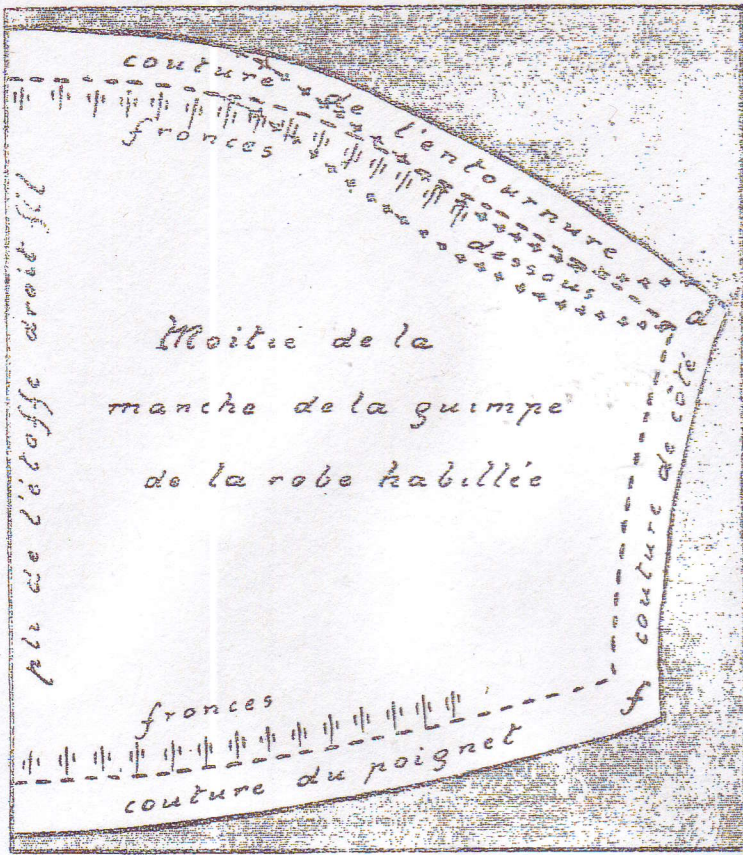 couture de l'entournure
fronces
dessous
d
pli de l'étoffe droit fil
Moitié de la
manche de la guimpe
de la robe habillée
couture de côté
fronces
f
couture du poignet